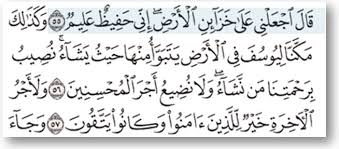 قَالَ ٱجۡعَلۡنِي عَلَىٰ خَزَآئِنِ ٱلۡأَرۡضِۖ إِنِّي حَفِيظٌ عَلِيمٞ ٥٥ وَكَذَٰلِكَ
مَكَّنَّا لِيُوسُفَ فِي ٱلۡأَرۡضِ يَتَبَوَّأُ مِنۡهَا حَيۡثُ يَشَآءُۚ نُصِيبُ
بِرَحۡمَتِنَا مَن نَّشَآءُۖ وَلَا نُضِيعُ أَجۡرَ ٱلۡمُحۡسِنِينَ ٥٦ وَلَأَجۡرُ
ٱلۡأٓخِرَةِ خَيۡرٞ لِّلَّذِينَ ءَامَنُواْ وَكَانُواْ يَتَّقُونَ ٥٧ وَجَآءَ